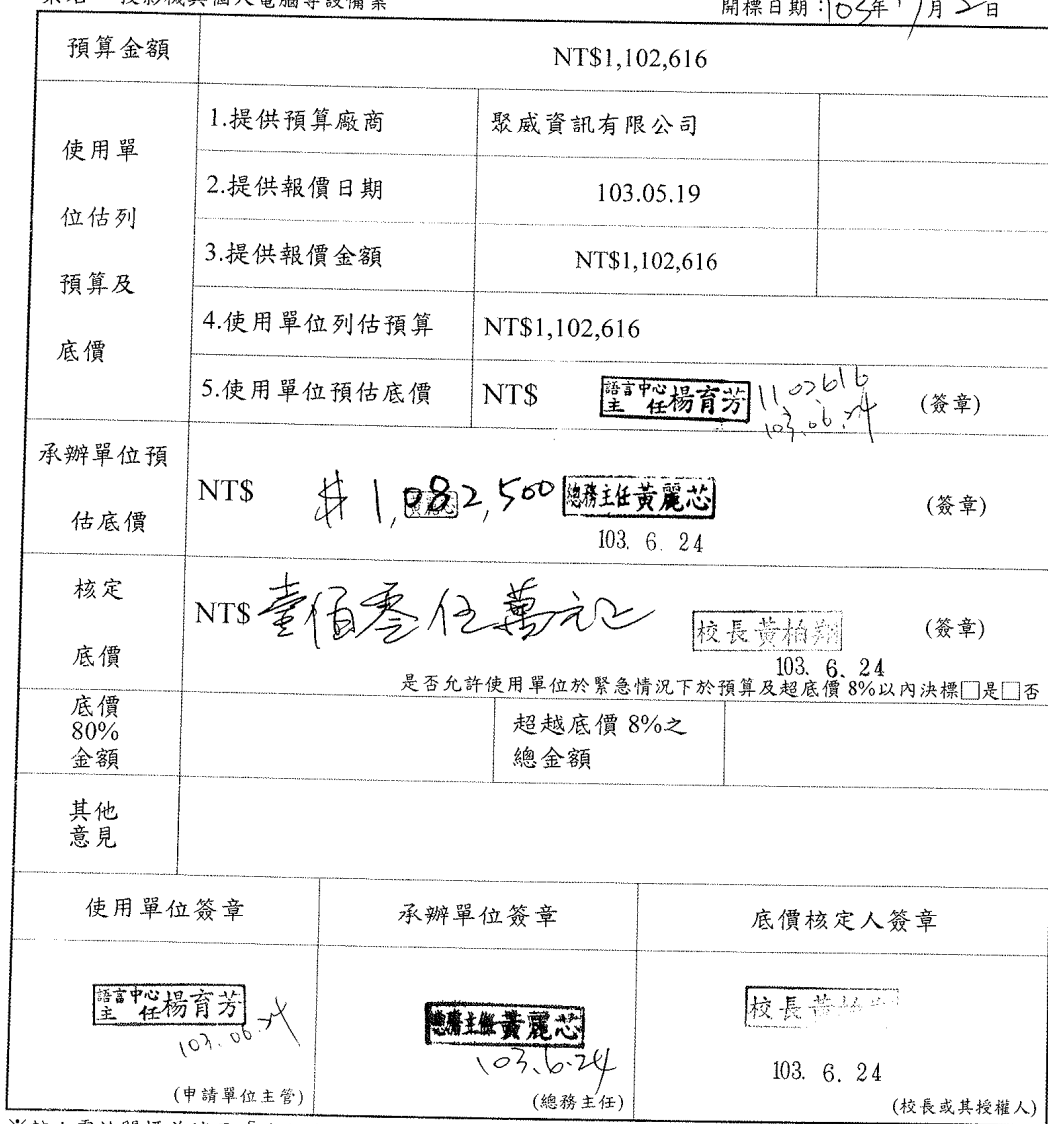 投影機與個人電腦等設備案
開標日期:103年7月2日
預算金額
NT$1,102,616
使用單
位估列
預算及
底價
1.提供預算廠商
聚威資訊有限公司
2.提供報價日期
103.05.19
3.提供報價金額
NT$1,102,616
4.使用單位列估預算
NT$1,102,616
5.使用單位預估底價
NT$
語言中心
主任 楊育芳
1102616
103.06.24
(簽章)
承辦單位預
估底價
NT$ # 1,082,500
總務主任黃麗芯
103. 6. 24
(簽章)
核定
底價
NT$ 壹佰零伍萬元正
校長黃柏翔
103. 6. 24
(簽章)
是否允許使用單位於緊急情況下於預算及超底價 8%以內決標□是□否
底價
80%
金額
超越底價 8%之
總金額
其他
意見
使用單位簽章
承辦單位簽章
底價核定人簽章
語言中心
主任 楊育芳
103.06.24
(申請單位主管)
總務主任黃麗芯
103.6.24
(總務主任)
校長黃柏翔
103. 6. 24
(校長或其授權人)